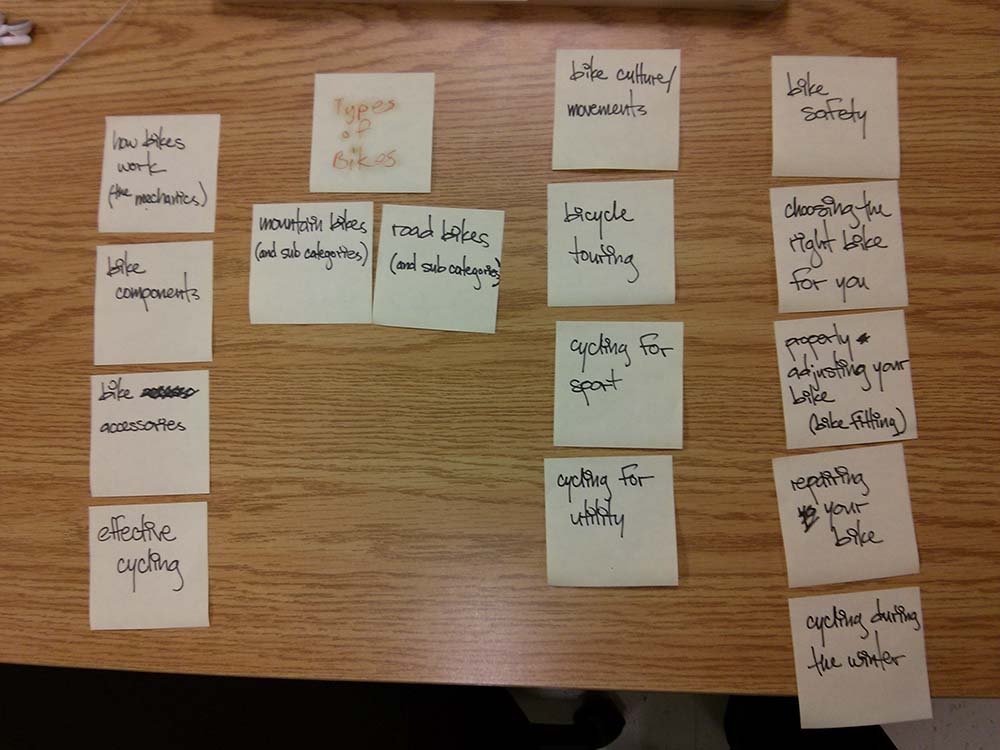 how bikes
work
(the mechanics)
bike
components
bike
accessories
effective
cycling
Types
of
Bikes
mountain bikes
(and sub categories)
road bikes
(and sub categories)
bike culture/
movements
bicycle
touring
cycling for
sport
cycling for
utility
bike
safety
choosing the
right bike
for you
properly
adjusting your
bike
(bike fitting)
repairing
your
bike
cycling during
the winter